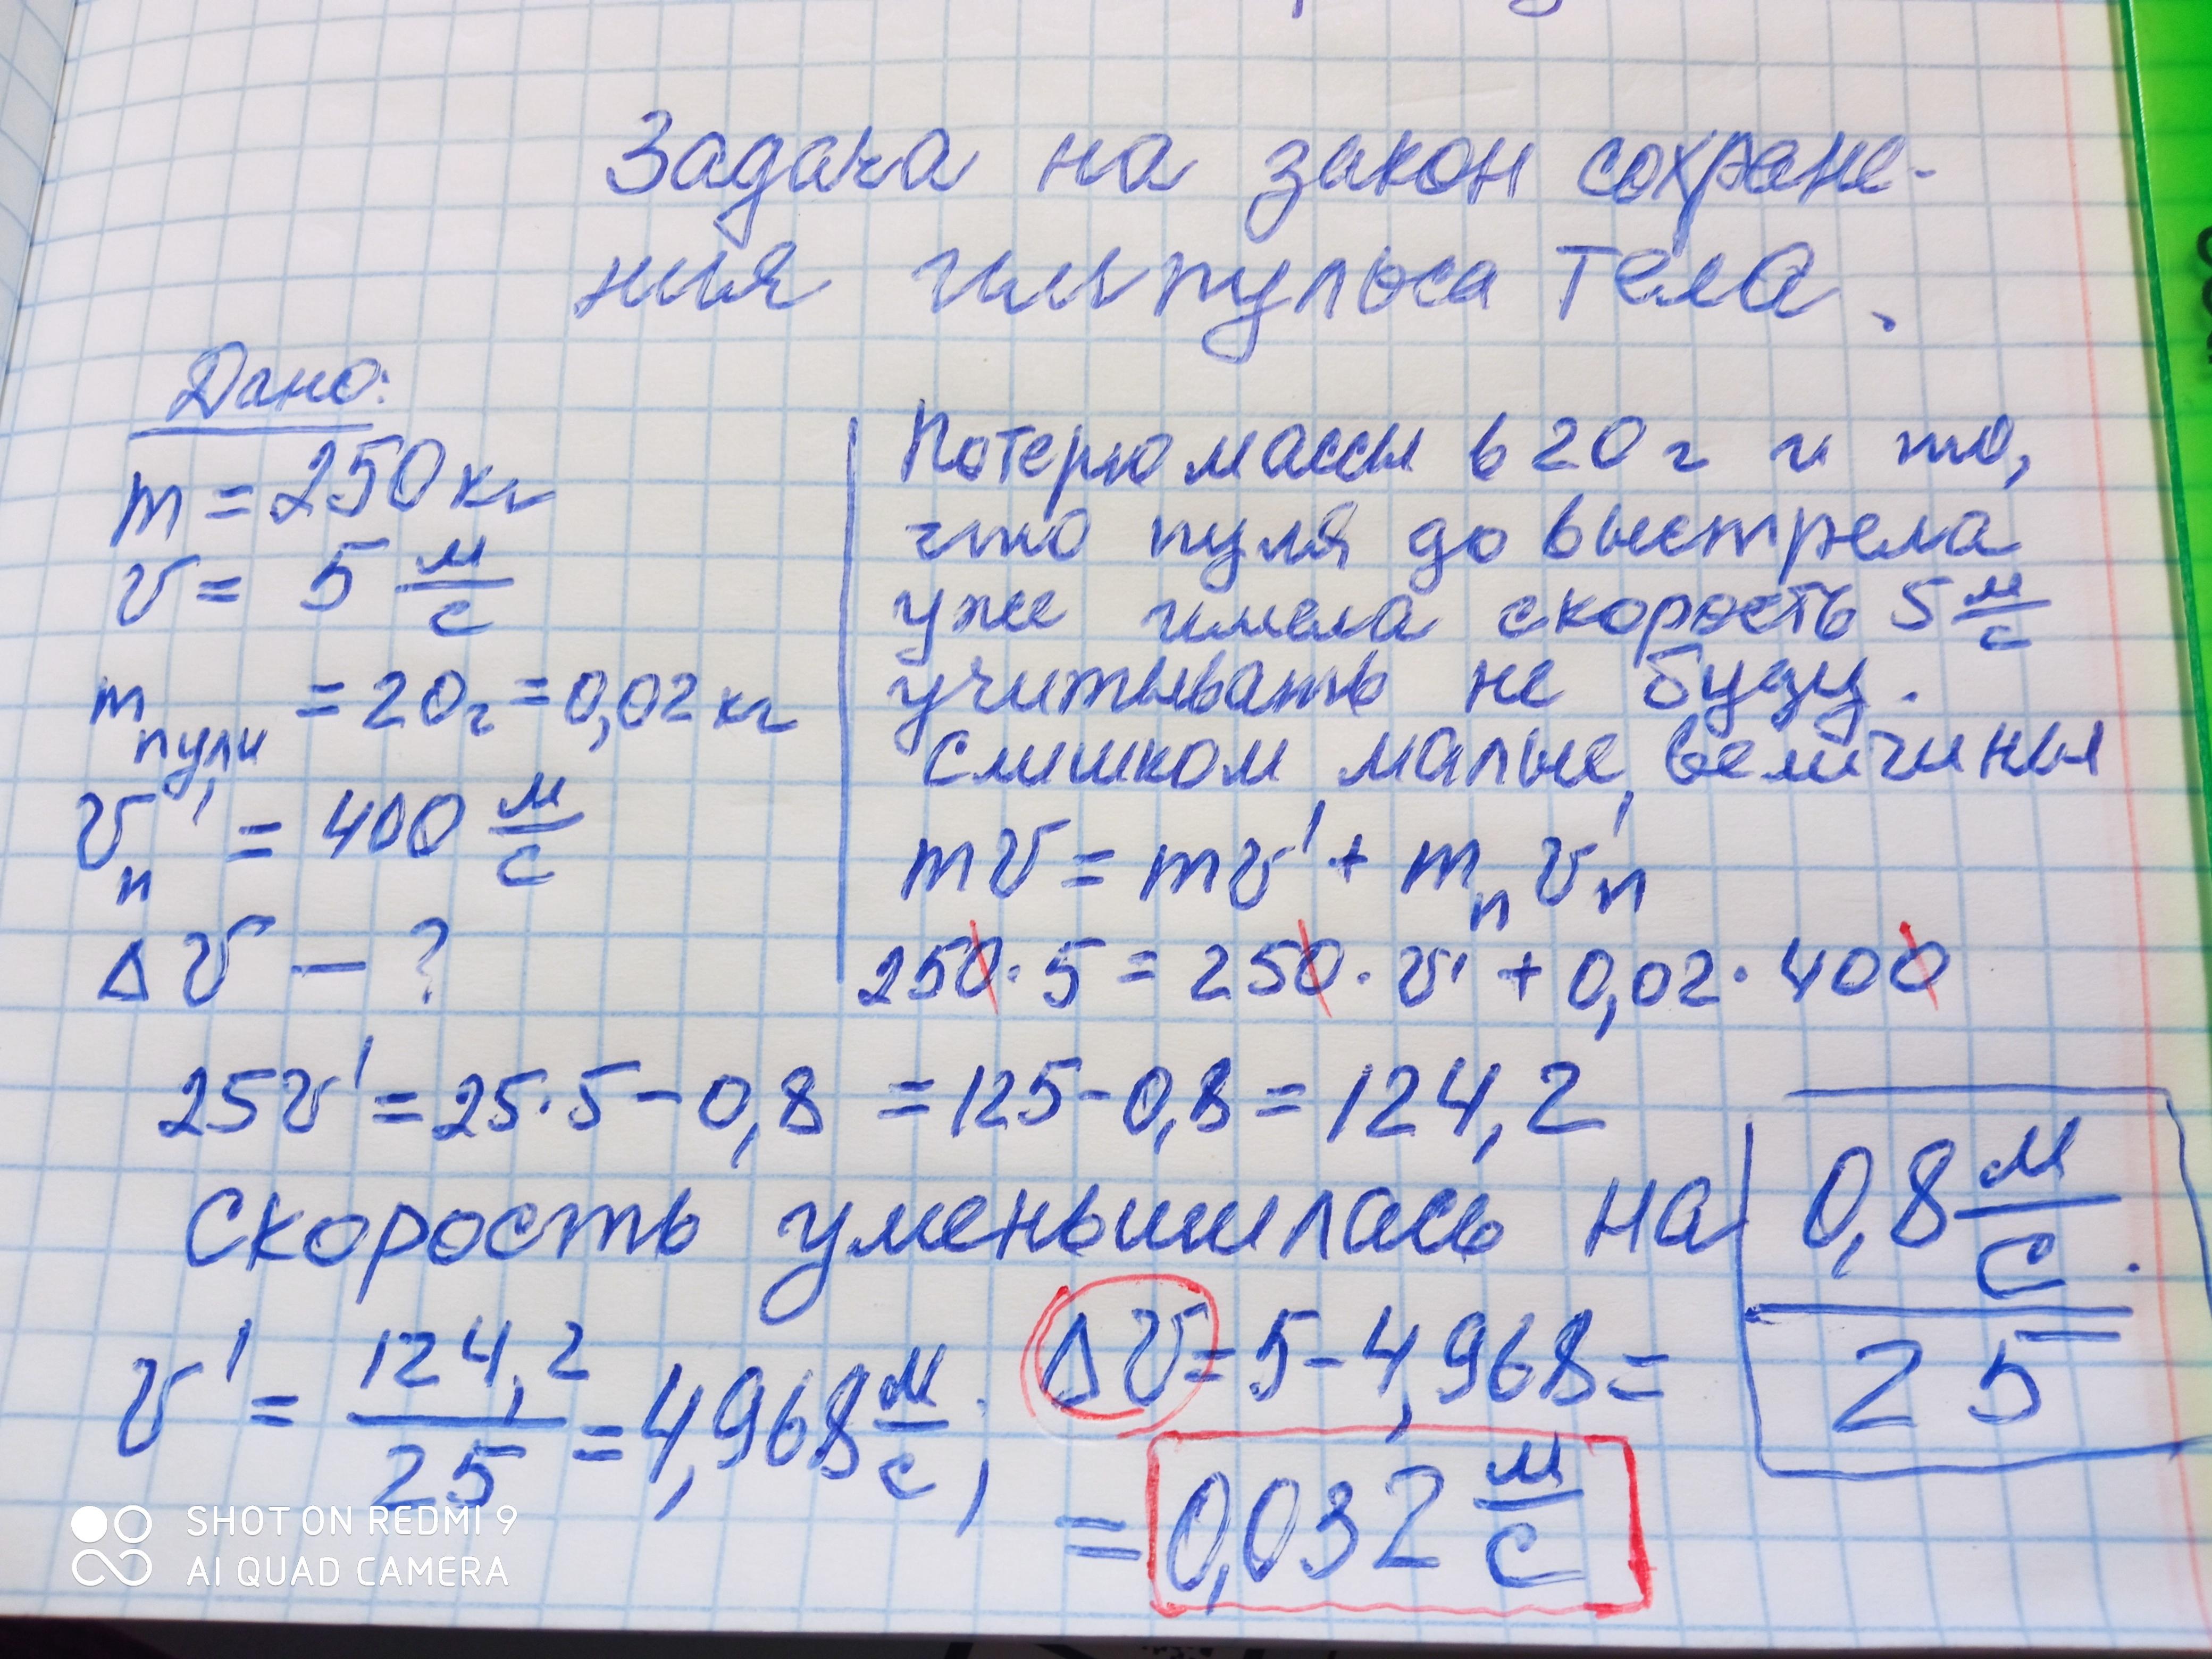 Задача на закон сохране-
ния импульса тела.
Дано:
m = 250 кг
v = 5 м/с
m пули = 20 г = 0,02 кг
v'п = 400 м/с
Δv — ?
Потерю массы в 20 г и то,
что пуля до выстрела
уже имела скорость 5 м/с
учитывать не буду.
слишком малые величины
mv = mv' + mпv'п
250 · 5 = 250 · v' + 0,02 · 400
25v' = 25·5 - 0,8 = 125 - 0,8 = 124,2
Скорость уменьшилась на 0,8 м/с.
25
v' = 124,2/25 = 4,968 м/с; Δv = 5 - 4,968 =
= 0,032 м/с
SHOT ON REDMI 9
AI QUAD CAMERA